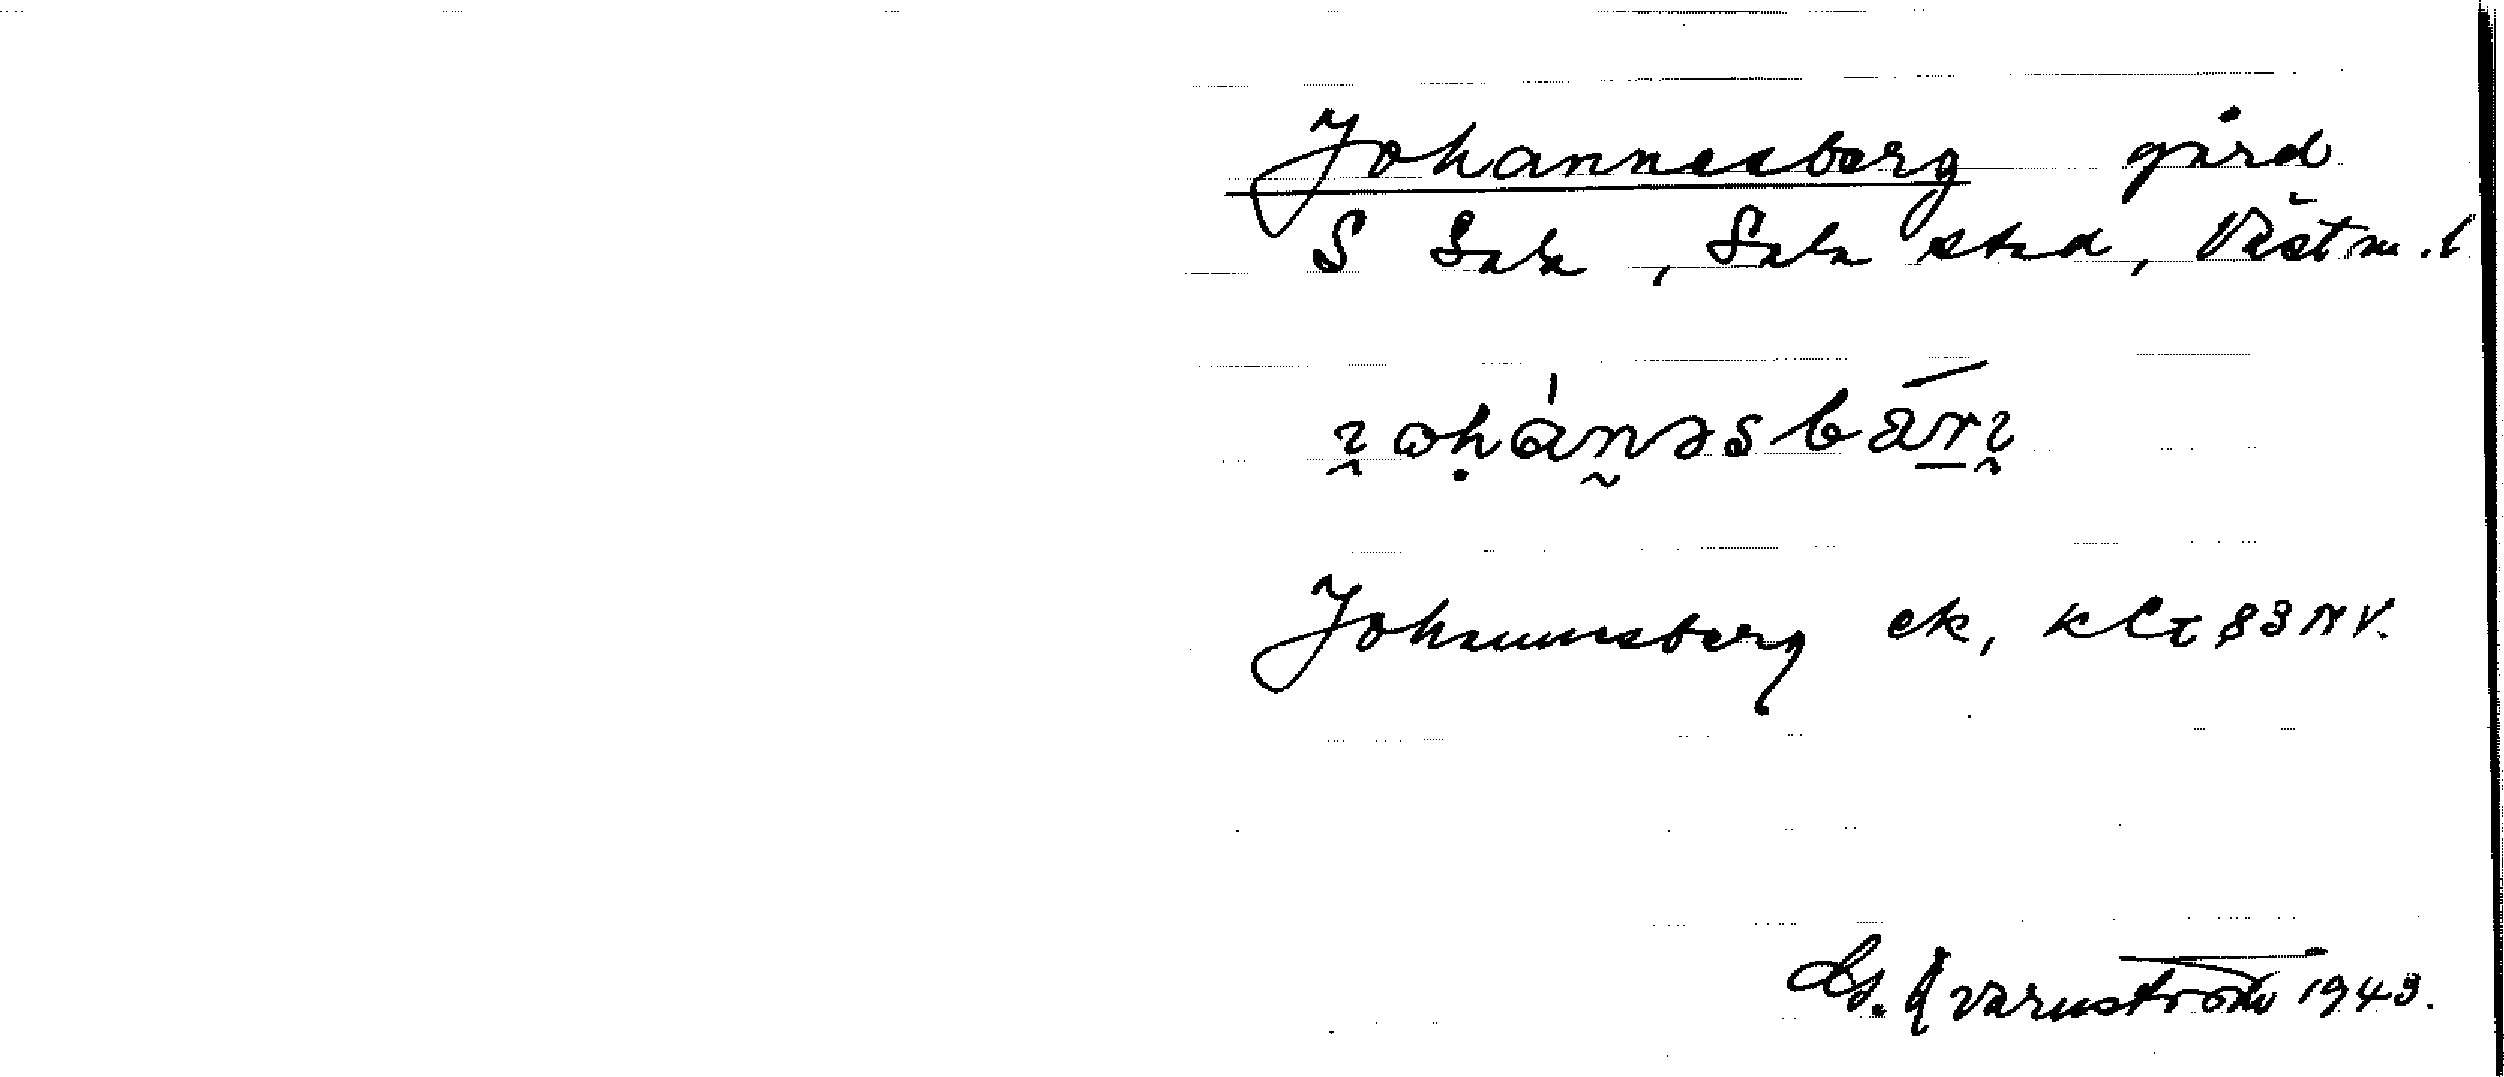 Johannesberg gård
S Sala, Sala stad, Västm. l
Johannesberg ek, kbl 83 NV.
Kvarnström 1943.